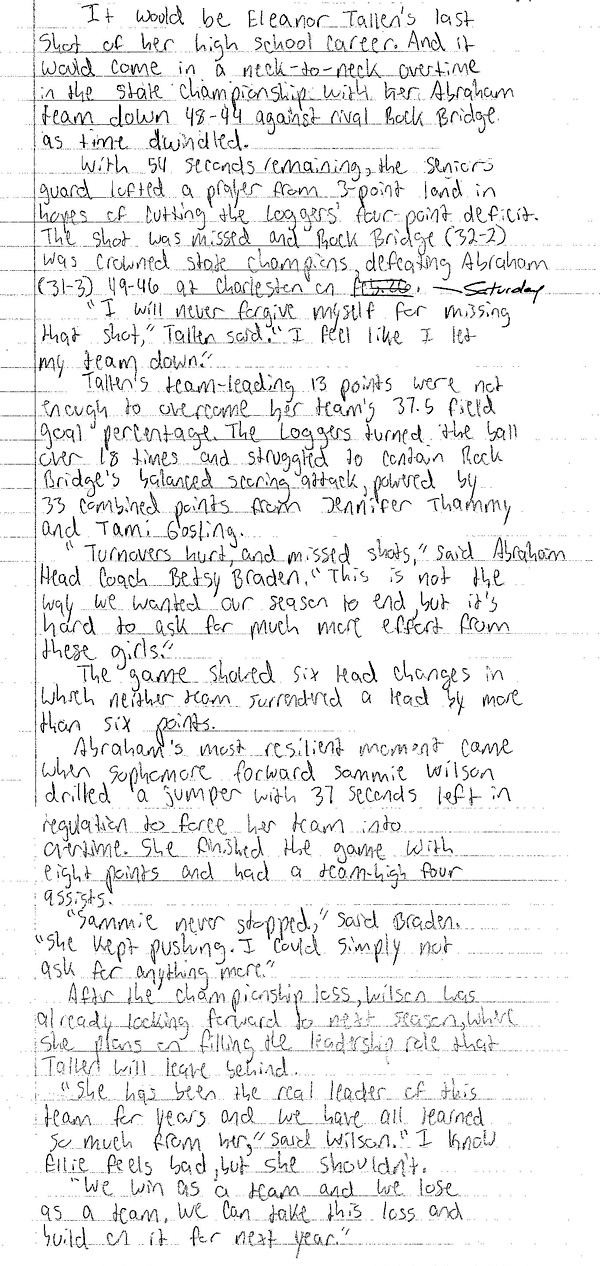 It would be Eleanor Tallen's last
shot of her high school career. And it
would come in a neck-to-neck overtime
in the state championship with her Abraham
team down 48-44 against rival Rock Bridge
as time dwindled.
With 54 seconds remaining, the seniors
guard lofted a prayer from 3-point land in
hopes of cutting the Loggers' four-point deficit.
The shot was missed and Rock Bridge (32-2)
was crowned state champions, defeating Abraham
(31-3) 49-46 at Charleston on Saturday
"I will never forgive myself for missing
that shot," Tallen said. "I feel like I let
my team down."
Tallen's team-leading 13 points were not
enough to overcome her team's 37.5 field
goal percentage. The Loggers turned the ball
over 18 times and struggled to contain Rock
Bridge's balanced scoring attack, powered by
33 combined points from Jennifer Thammy
and Tami Gosling.
"Turnovers hurt, and missed shots," said Abraham
Head Coach Betsy Braden. "This is not the
way we wanted our season to end, but it's
hard to ask for much more effort from
these girls."
The game showed six lead changes in
which neither team surrendered a lead by more
than six points.
Abraham's most resilient moment came
when sophomore forward Sammie Wilson
drilled a jumper with 37 seconds left in
regulation to force her team into
overtime. She finished the game with
eight points and had a team-high four
assists.
"Sammie never stopped," said Braden.
"She kept pushing. I could simply not
ask for anything more."
After the championship loss, Wilson was
already looking forward to next season, where
she plans on filling the leadership role that
Tallen will leave behind.
"She has been the real leader of this
team for years and we have all learned
so much from her," said Wilson. "I know
Ellie feels bad, but she shouldn't.
"We win as a team and we lose
as a team. We can take this loss and
build on it for next year."